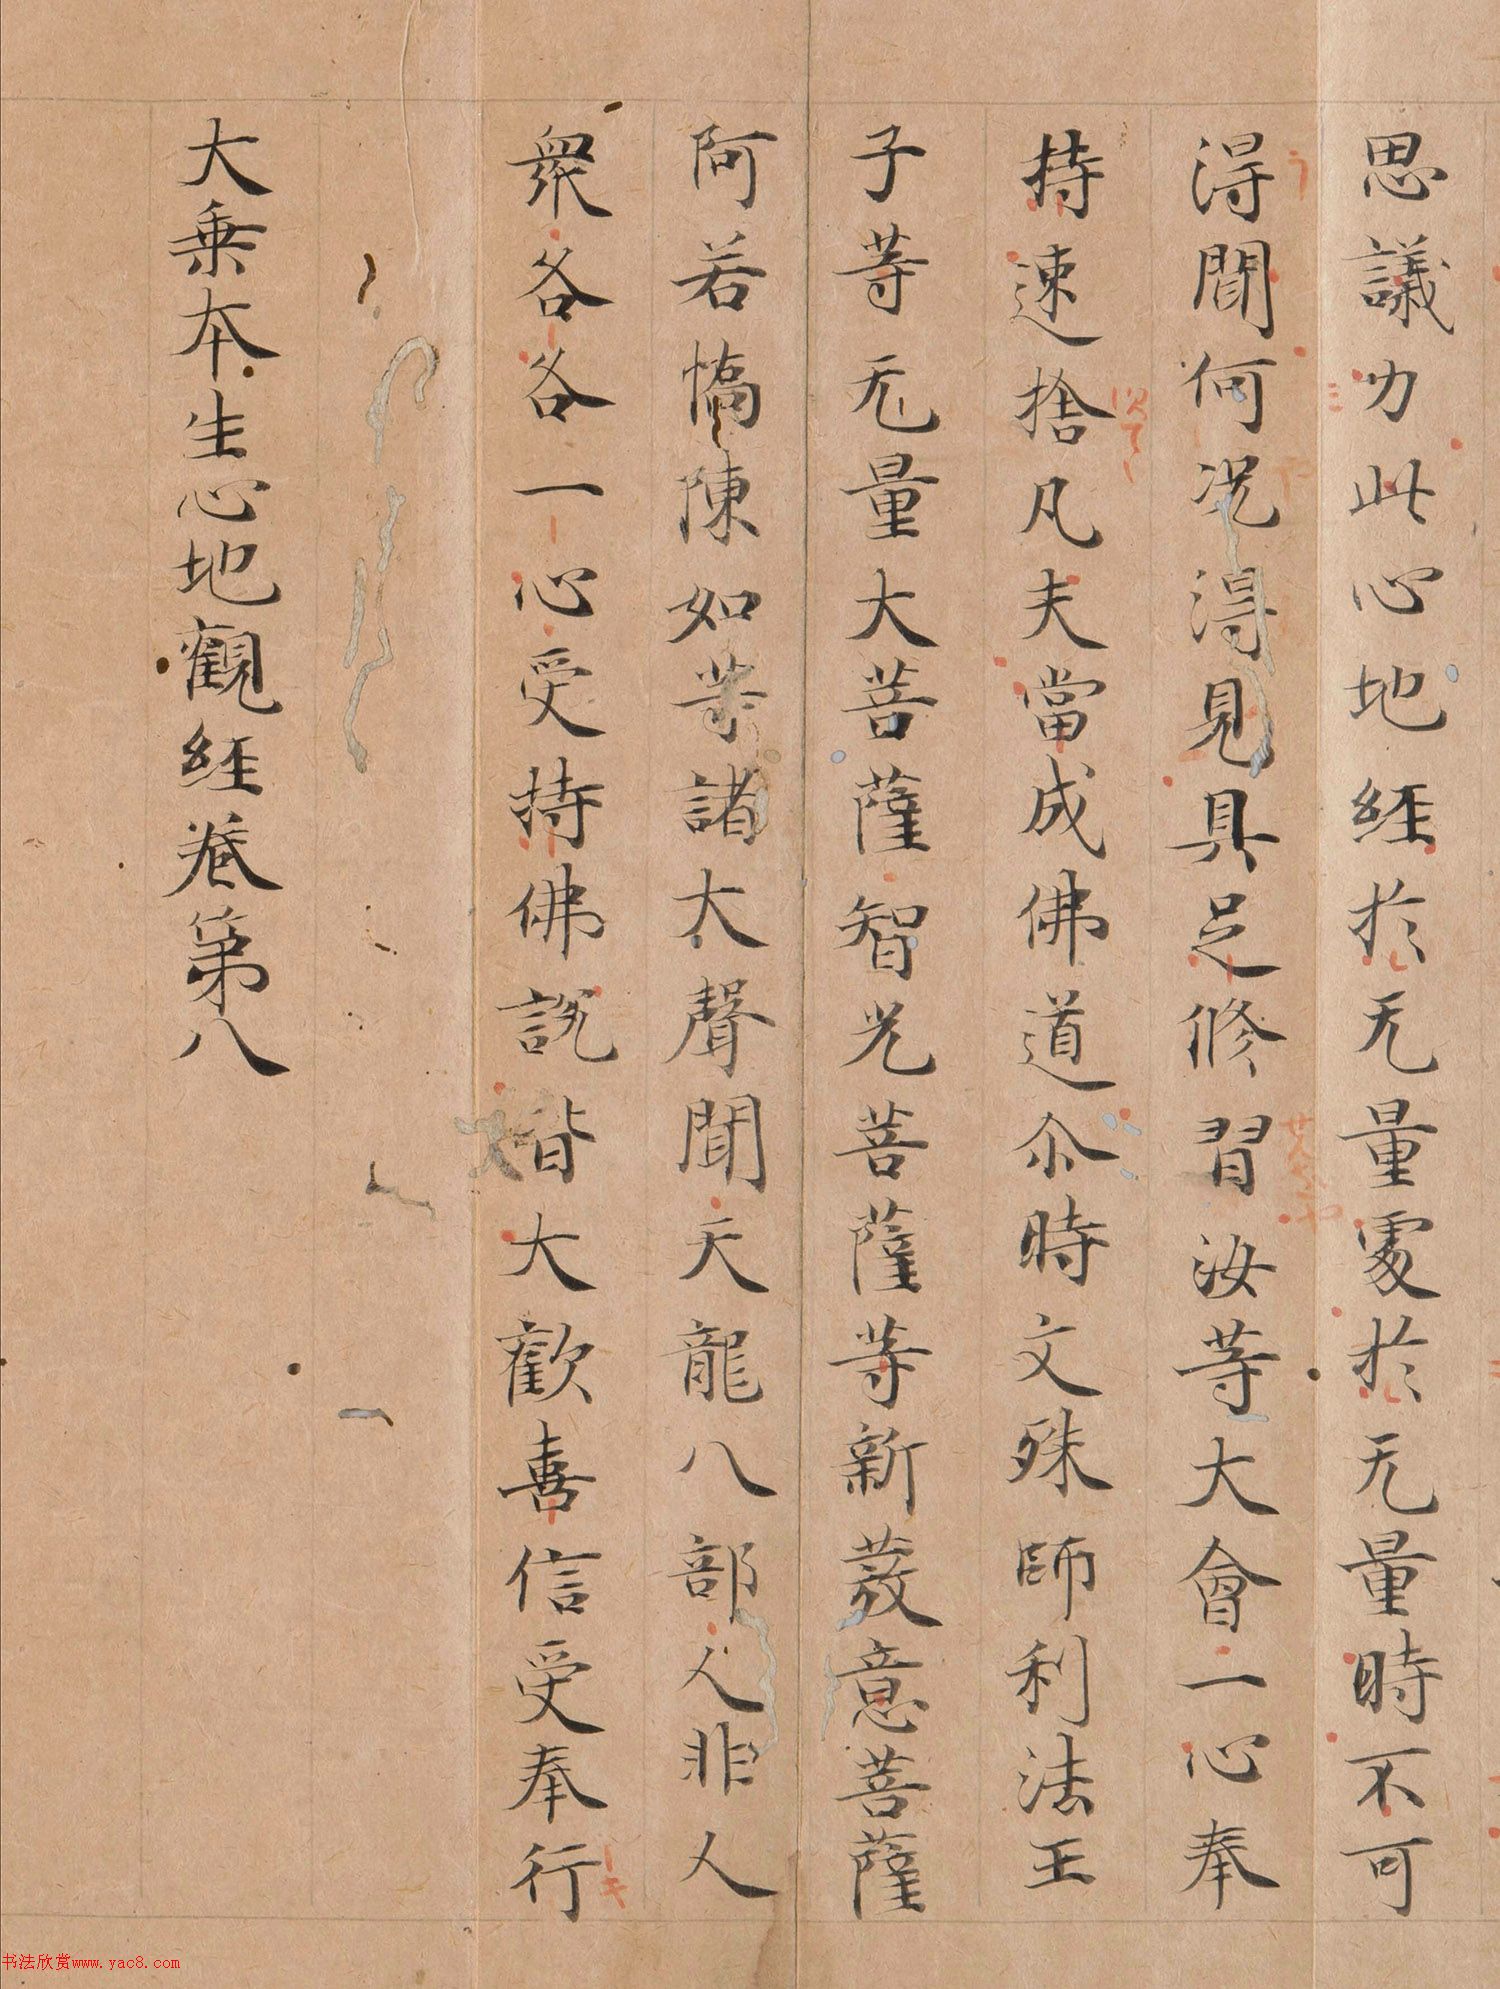 思議力此心地經於无量處於无量時不可
得聞何況得見具足修習汝等大會一心奉
持速捨凡夫當成佛道尒時文殊師利法王
子等无量大菩薩智光菩薩等新發意菩薩
阿若憍陳如等諸大聲聞天龍八部人非人
衆各各一心受持佛說皆大歡喜信受奉行
大乘本生心地觀經卷第八
书法欣赏www.yac8.com